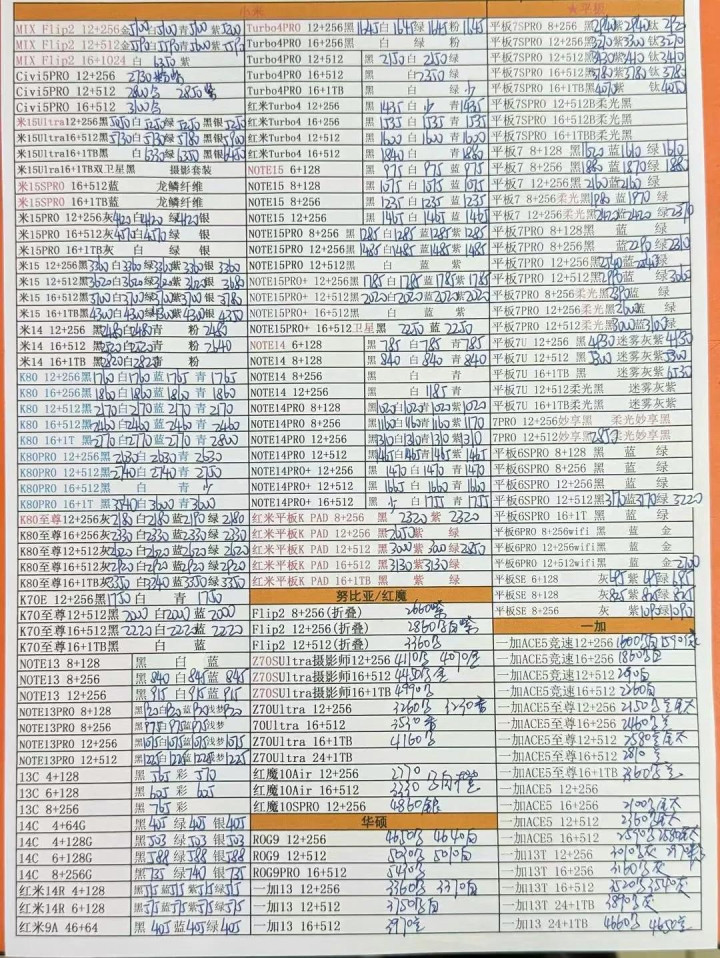 小米
MIX Flip2 12+256金5100白5100青5100紫5200
MIX Flip2 12+512金5590白5590青5590紫5590
MIX Flip2 16+1024 白 6350 紫
Civi5PRO 12+256 2730
Civi5PRO 12+512 2800 2850
Civi5PRO 16+512 3100
米15Ultra12+256黑5050白5250绿5250黑银5250
米15Ultra16+512黑5730白5730绿5780黑银5850
米15Ultra16+1TB黑 白6330绿6350黑银6450
米15Ulral6+1TB双卫星黑 摄影套装
米15SPRO 16+512蓝 龙鳞纤维
米15SPRO 16+1TB蓝 龙鳞纤维
米15PRO 12+256灰4120白4120绿4120银
米15PRO 16+512灰4570白4570绿 银
米15PRO 16+1TB灰 白 绿 银
米15 12+256黑3360白3360绿3360紫3360银 3360
米15 12+512黑3620白3620绿3620紫3620银 3680
米15 16+512黑3700白3700绿3700紫3700银 3780
米15 16+1TB黑4300白4300绿4300紫4300银 4350
米14 12+256 黑2480白2480青 粉 2480
米14 16+512黑2520白2520青 粉 2640
米14 16+1TB 黑2820白2820青 粉
K80 12+256黑1760白1760蓝 1765 青 1765
K80 16+256黑1860白1860蓝 1860 青 1860
K80 12+512黑2170白2170蓝 2170 青 2170
K80 16+512黑2460白2460蓝 2460 青 2460
K80 16+1T 黑2770白2770蓝2770 青2800
K80PRO 12+256黑2630白2630青 2630
K80PRO 12+512黑2740白2740青 2750
K80PRO 16+512黑 白 青 少
K80PRO 16+1T 黑3540白3600青 3600
K80至尊12+256灰2180白2180蓝2190绿 2180
K80至尊16+256灰2330白2330蓝2330绿 2330
K80至尊12+512灰2620白2620蓝2620绿 2620
K80至尊16+512灰2920白2920蓝2920绿 2920
K80至尊16+1TB灰3350白3240蓝3350绿3350
K70E 12+256黑1750 白 青 1750
K70至尊12+512黑 2000 白2000 蓝 2000
K70至尊16+512黑 2220白2220蓝 2220
K70至尊16+1TB黑 白 蓝
NOTE13 8+128 黑 白 蓝
NOTE13 8+256 黑 840 白 845 蓝 845
NOTE13 12+256 黑 915 白 915 蓝 915
NOTE13PRO 8+128 黑920白920蓝920浅梦920
NOTE13PRO 8+256 黑975白975蓝975浅梦
NOTE13PRO 12+256 黑1075白1075蓝1075浅梦1075
NOTE13PRO 12+512 黑1225白1225蓝1225浅梦1225
13C 4+128 黑 565 彩 570
13C 6+128 黑 605 彩 605
13C 8+256 黑 765 彩
14C 4+64G 黑405 绿405 银405
14C 4+128G 黑503 绿503 银503
14C 6+128G 黑588 绿588 银588
14C 8+256G 黑735 绿740 银735
红米14R 4+128 黑515蓝515紫515绿515
红米14R 6+128 黑575蓝575紫575绿575
红米9A 46+64 黑 405蓝405绿405
Turbo4PRO 12+256黑1645白1645绿1645粉1645
Turbo4PRO 16+256 黑 白 绿 粉
Turbo4PRO 12+512 黑 2150 白 2150 绿
Turbo4PRO 16+512 黑 白2350 绿
Turbo4PRO 16+1TB 黑 白 绿 少
红米Turbo4 12+256 黑1435白 少 青1435
红米Turbo4 16+256 黑1535白1535青1535
红米Turbo4 12+512 黑1600白1600青1600
红米Turbo4 16+512 黑1840白 青1860
NOTE15 6+128 黑 975 白975 蓝975
NOTE15 8+128 黑1075白1075蓝1075
NOTE15 8+256 黑1235白1235蓝1235
NOTE15 12+256 黑1465白1465蓝1465
NOTE15PRO 8+256 黑1285白1285蓝1285紫1285
NOTE15PRO 12+256 黑1485白1485蓝1485紫1485
NOTE15PRO 12+512黑 白 蓝 紫
NOTE15PRO+ 12+256黑1785白1785蓝1785紫1785
NOTE15PRO+ 12+512黑2020白2020蓝2020紫2020
NOTE15PRO+ 16+512黑 白 蓝 紫
NOTE15PRO+ 16+512卫星黑 2250 蓝 2250
NOTE14 6+128 黑 785 白 785 青 785
NOTE14 8+128 黑 840 白840 青840
NOTE14 8+256 黑 白 青
NOTE14 12+256 黑 白 1185 青
NOTE14PRO 8+128 黑1020白1020青1020紫1020
NOTE14PRO 8+256 黑1160白1160青1160紫1170
NOTE14PRO 12+256 黑1310白1310青1310紫1310
NOTE14PRO 12+512 黑1465白1465青1465紫1465
NOTE14PRO+ 12+256 黑1470白1470青1470
NOTE14PRO+ 12+512 黑1665白1660青1665
NOTE14PRO+ 16+512 黑 少 白1755青1755
红米平板K PAD 8+256 黑 2320 紫 2320
红米平板K PAD 12+256 黑2650紫 绿
红米平板K PAD 12+512 黑3000紫3000绿2850
红米平板K PAD 16+512 黑3130紫3130绿
红米平板K PAD 16+1TB 黑 紫 绿
努比亚/红魔
Flip2 8+256(折叠) 2660
Flip2 12+256(折叠) 2860
Flip2 12+512(折叠) 3360
Z70SUltra摄影师12+256 4110 4070
Z70SUltra摄影师16+512 4450
Z70SUltra摄影师16+1TB 4990
Z70Ultra 12+256 3260 3230
70Ultra 16+512 3530
Z70Ultra 16+1TB 4160
Z70Ultra 24+1TB
红魔10Air 12+256 2770
红魔10Air 16+512 3330
红魔10SPRO 12+256 4860
华硕
ROG9 12+256 4650 4640白
ROG9 12+512 5020 5010白
ROG9PRO 16+512 5490
一加13 12+256 3360 3370
一加13 12+512 3750
一加13 16+512 3970
平板7SPRO 8+256 黑2840紫2840钛 2920
平板7SPRO 12+256黑3270紫3300钛3270
平板7SPRO 12+512黑3430紫3440钛3440
平板7SPRO 16+512黑3780紫3780钛3780
平板7SPRO 16+1TB黑4050紫 钛 4050
平板7SPRO 12+512B柔光黑
平板7SPRO 16+512B柔光黑
平板7SPRO 16+1TBB柔光黑
平板7 8+128 黑1620 蓝1610 绿1610
平板7 8+256 黑1880 蓝1870绿1880
平板7 12+256 黑2160蓝2160 绿
平板7 8+256柔光黑1980 蓝 1970 绿
平板7 12+256柔光黑2420蓝2420 绿2390
平板7PRO 8+128黑 蓝 绿
平板7PRO 8+256黑 蓝 2290 绿2310
平板7PRO 12+256黑2540蓝2540绿
平板7PRO 12+512黑2990蓝 绿3000
平板7PRO 8+256柔光黑2390蓝 绿
平板7PRO 12+256柔光黑2600蓝 绿
平板7PRO 12+512柔光黑3000蓝3100绿
平板7U 12+256 黑4930 迷雾灰紫4930
平板7U 12+512 黑5300 迷雾灰紫5300
平板7U 16+1TB 黑 迷雾灰紫6530
平板7U 12+512柔光黑 迷雾灰紫
平板7U 16+1TB柔光黑 迷雾灰紫
7PRO 12+256妙享黑 柔光妙享黑
7PRO 12+512妙享黑2850柔光妙享黑
平板6SPRO 8+128 黑 蓝 绿
平板6SPRO 8+256 黑 蓝 绿
平板6SPRO 12+256 黑 蓝 绿
平板6SPRO 12+512黑3170蓝3170绿 3220
平板6SPRO 16+1T 黑 蓝 绿
平板6PRO 8+256wifi 黑 蓝 金
平板6PRO 12+256wifi黑 蓝 金
平板6PRO 12+512wifi黑 蓝 金2700
平板SE 6+128 灰 695 紫 695绿685
平板SE 8+128 灰825紫825绿825
平板SE 8+256 灰 紫1090绿1090
一加
一加ACE5竞速12+256 1600 1590
一加ACE5竞速16+256 1860
一加ACE5竞速12+512
一加ACE5竞速16+512 2260
一加ACE5至尊12+256 2150
一加ACE5至尊16+256 2460
一加ACE5至尊12+512 2580
一加ACE5至尊16+512 2810
一加ACE5至尊16+1TB 3360
一加ACE5 12+256
一加ACE5 16+256 2100
一加ACE5 12+512 2360
一加ACE5 16+512 2590 2580
一加13T 12+256 3010
一加13T 16+256 3160
一加13T 16+512 3520 3540
一加13T 24+1TB 3890
一加13 24+1TB 4660 4650